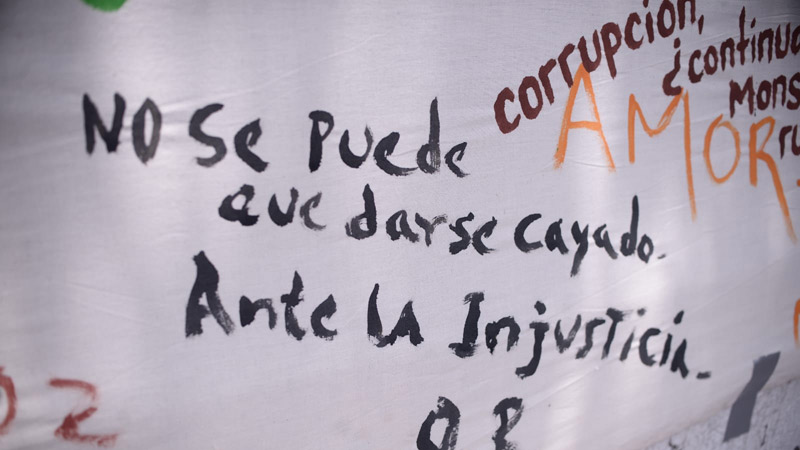 corrupción,
¿continua
Mons
AMOR
NO Se Puede
que darse cayado.
Ante la Injusticia.
O R
oz